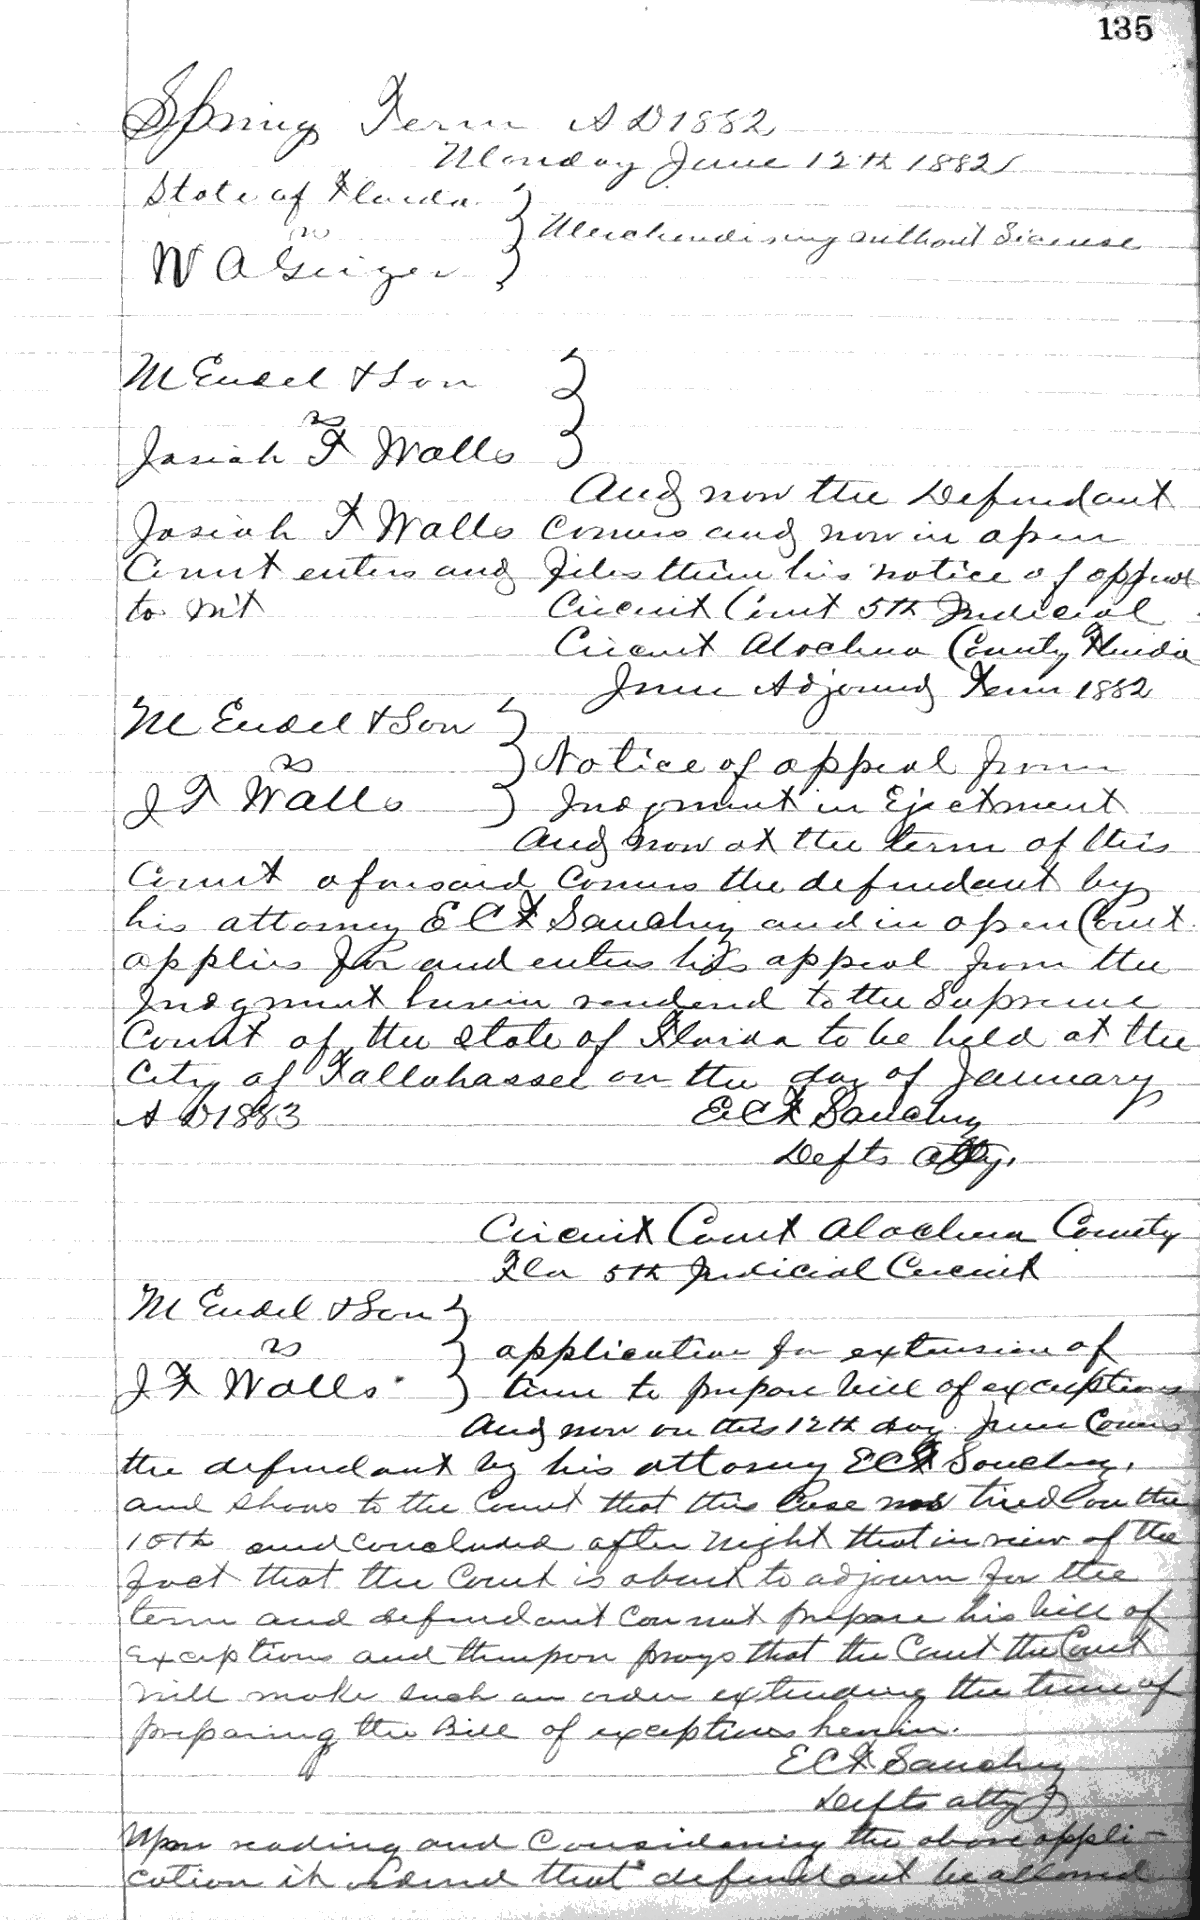 135
Spring Term A D 1882
Monday June 12th 1882
State of Florida
vs
Merchandising without License
W A Geiger
M Endel & Son
vs
Josiah T Walls
And now the Defendant
Josiah T Walls comes and now in open
Court enters and files this his notice of appeal
to wit
Circuit Court 5th Judicial
Circuit Alachua County Florida
June Adjourned Term 1882
M Endel & Son
vs
Notice of appeal from
J T Walls
Judgment in Ejectment
And now at the term of this
Court aforesaid comes the defendant by
his attorney E C F Sanchez and in open Court
applies for and enters his appeal from the
Judgment herein rendered to the Supreme
Court of the State of Florida to be held at the
City of Tallahassee on the day of January
A D 1883
E C F Sanchez
Defts atty.
Circuit Court Alachua County
Fla 5th Judicial Circuit
M Endel & Son
vs
application for extension of
J T Walls
time to prepare bill of exceptions
And now on this 12th day June Comes
the defendant by his attorney E C F Sanchez.
and shows to the Court that this Case was tried on the
10th and concluded after night that in view of the
fact that the Court is about to adjourn for the
term and defendant can not prepare his bill of
exceptions and thereupon prays that the Court the Court
will make such an order extending the time of
preparing the Bill of exceptions herein.
E C F Sanchez
Defts atty
Upon reading and considering the above appli-
cation it ordered that defendant be allowed